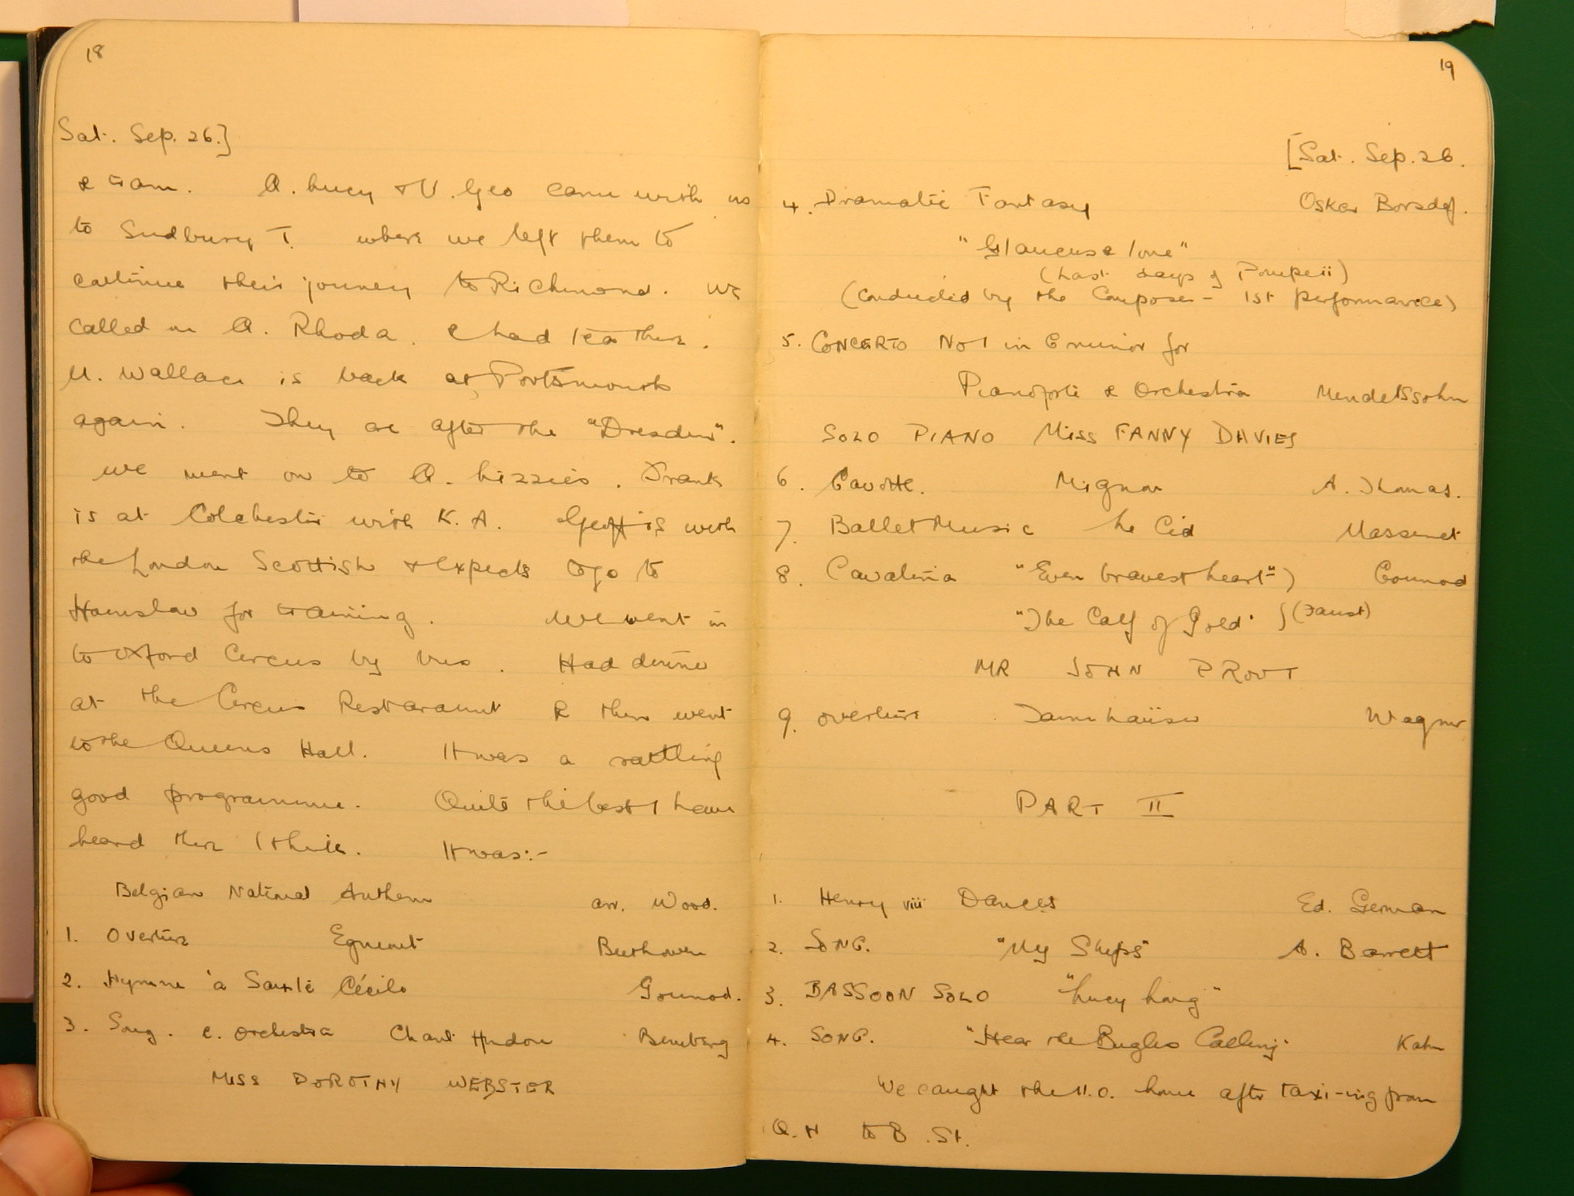 18
Sat. Sep. 26.]
& tram. A. Lucy & U. Geo came with us
to Sudbury T. where we left them to
continue their journey to Richmond. We
called on A. Rhoda. & had tea there.
U. Wallace is back at Portsmouth
again. They are after the "Dresden".
We went on to A. Lizzies. Frank
is at Colchester with K.A. Geoff is with
the London Scottish & expects to go to
Hounslow for training. We went in
to Oxford Circus by bus. Had dinner
at the Circus Restaraunt & then went
to the Queens Hall. It was a rattling
good programme. Quite the best I have
heard there I think. It was:-
Belgian National Anthem arr. Wood.
1. Overture Egmont Beethoven
2. Hymne à Sainte Cécile Gounod.
3. Song. c. Orchestra Chant Hindou Bemberg
MISS DOROTHY WEBSTER
19
[Sat. Sep. 26.
4. Dramatic Fantasy Oskar Borsdorf.
"Glaucus & Ione"
(Last days of Pompeii)
(Conducted by the Composer - 1st performance)
5. CONCERTO No 1 in G minor for
Pianoforte & Orchestra Mendelssohn
SOLO PIANO MISS FANNY DAVIES
6. Gavotte. Mignon A. Thomas.
7. Ballet Music Le Cid Massenet
8. Cavatina "Even bravest heart" } Gounod
"The Calf of Gold" } (Faust)
MR JOHN PROUT
9. Overture Tannhaüser Wagner
PART II
1. Henry viii Dances Ed. German
2. SONG. "My Ships" A. Barrett
3. BASSOON SOLO "Lucy Long"
4. SONG. "Hear the Bugles Calling" Kahn
We caught the 11.0. home after taxi-ing from
Q.H to B. St.